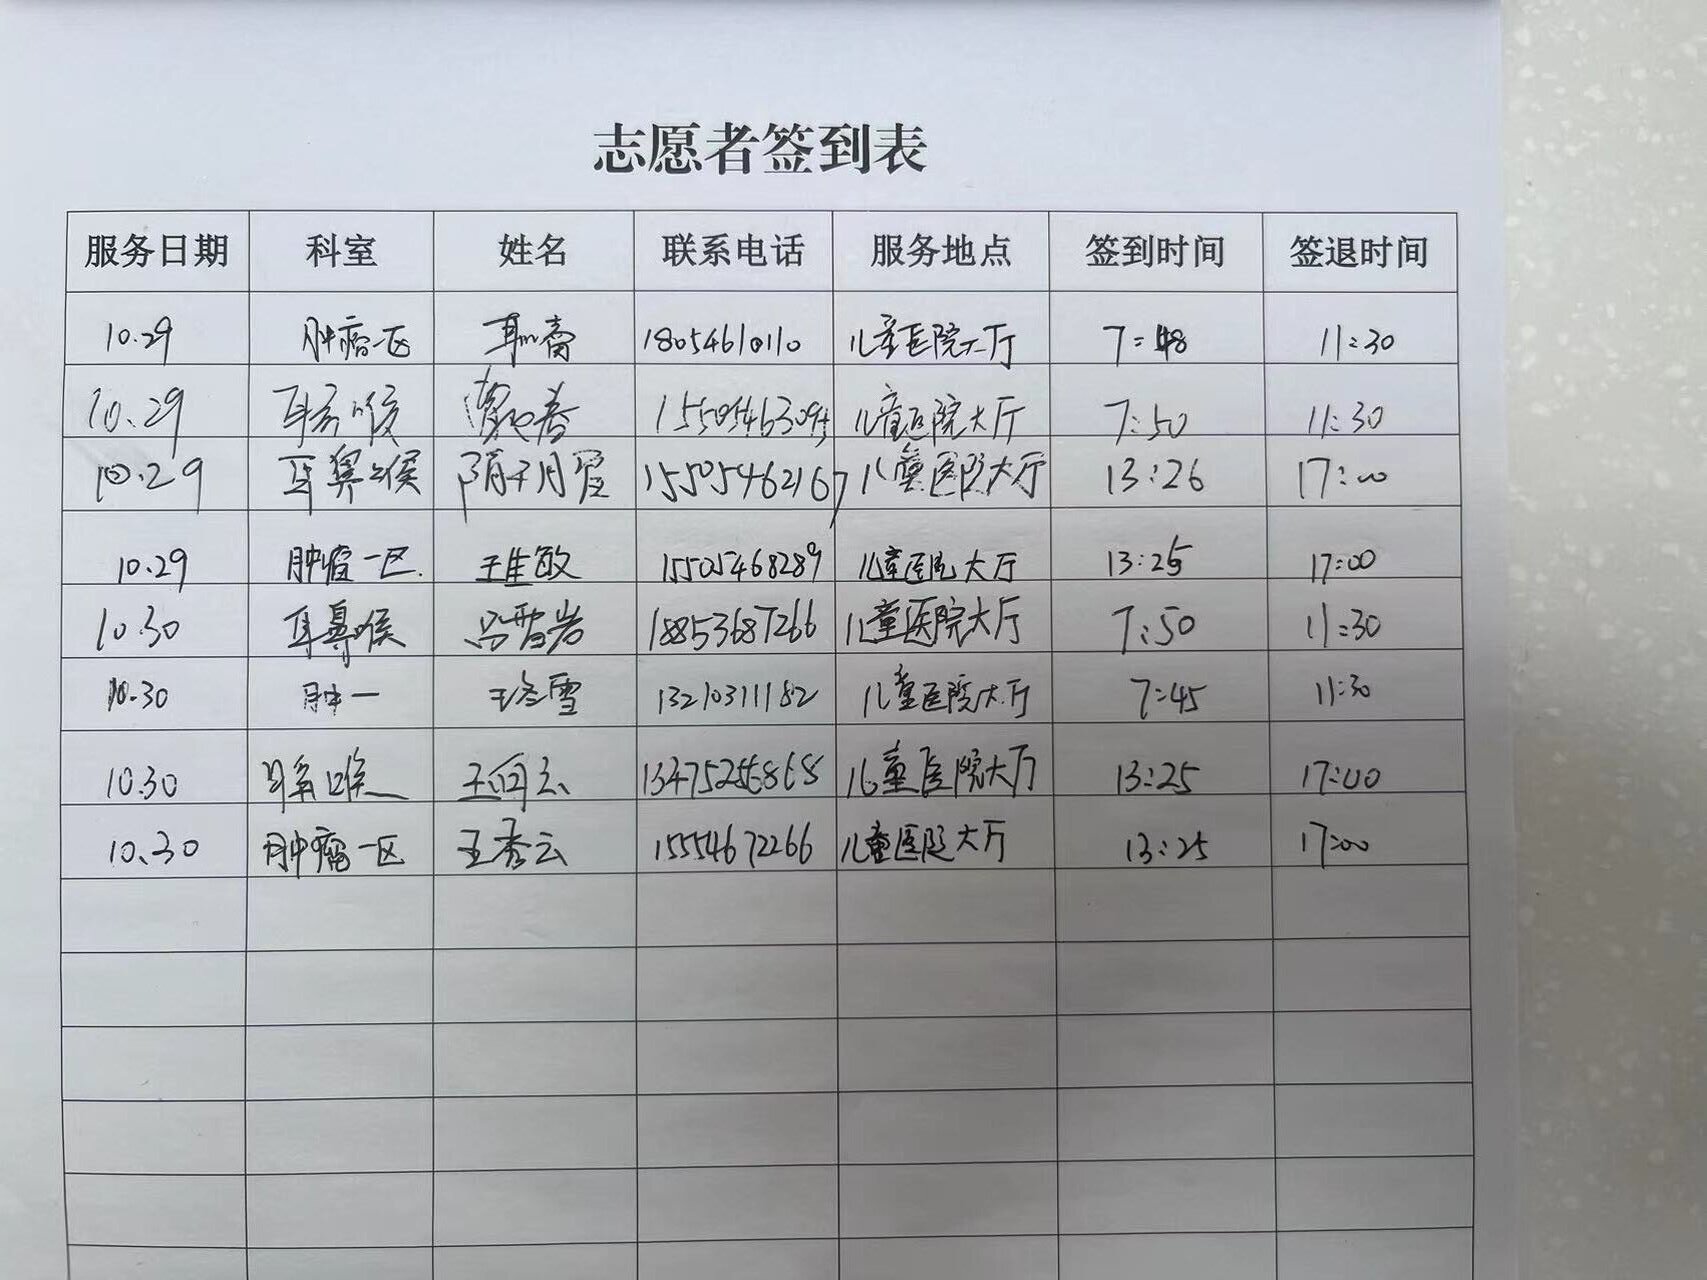 志愿者签到表
服务日期 科室 姓名 联系电话 服务地点 签到时间 签退时间
10.29 肿瘤一区 18054610110 儿童医院大厅 7:48 11:30
10.29 耳鼻喉 儿童医院大厅 7:50 11:30
10.29 耳鼻喉 15505462167 儿童医院大厅 13:26 17:00
10.29 肿瘤一区. 王生敏 15505468289 儿童医院大厅 13:25 17:00
10.30 耳鼻喉 马雪岩 18853687266 儿童医院大厅 7:50 11:30
10.30 肿一 13210311182 儿童医院大厅 7:45 11:30
10.30 耳鼻喉 王向云 儿童医院大厅 13:25 17:00
10.30 肿瘤一区 王秀云 15554672266 儿童医院大厅 13:25 17:00